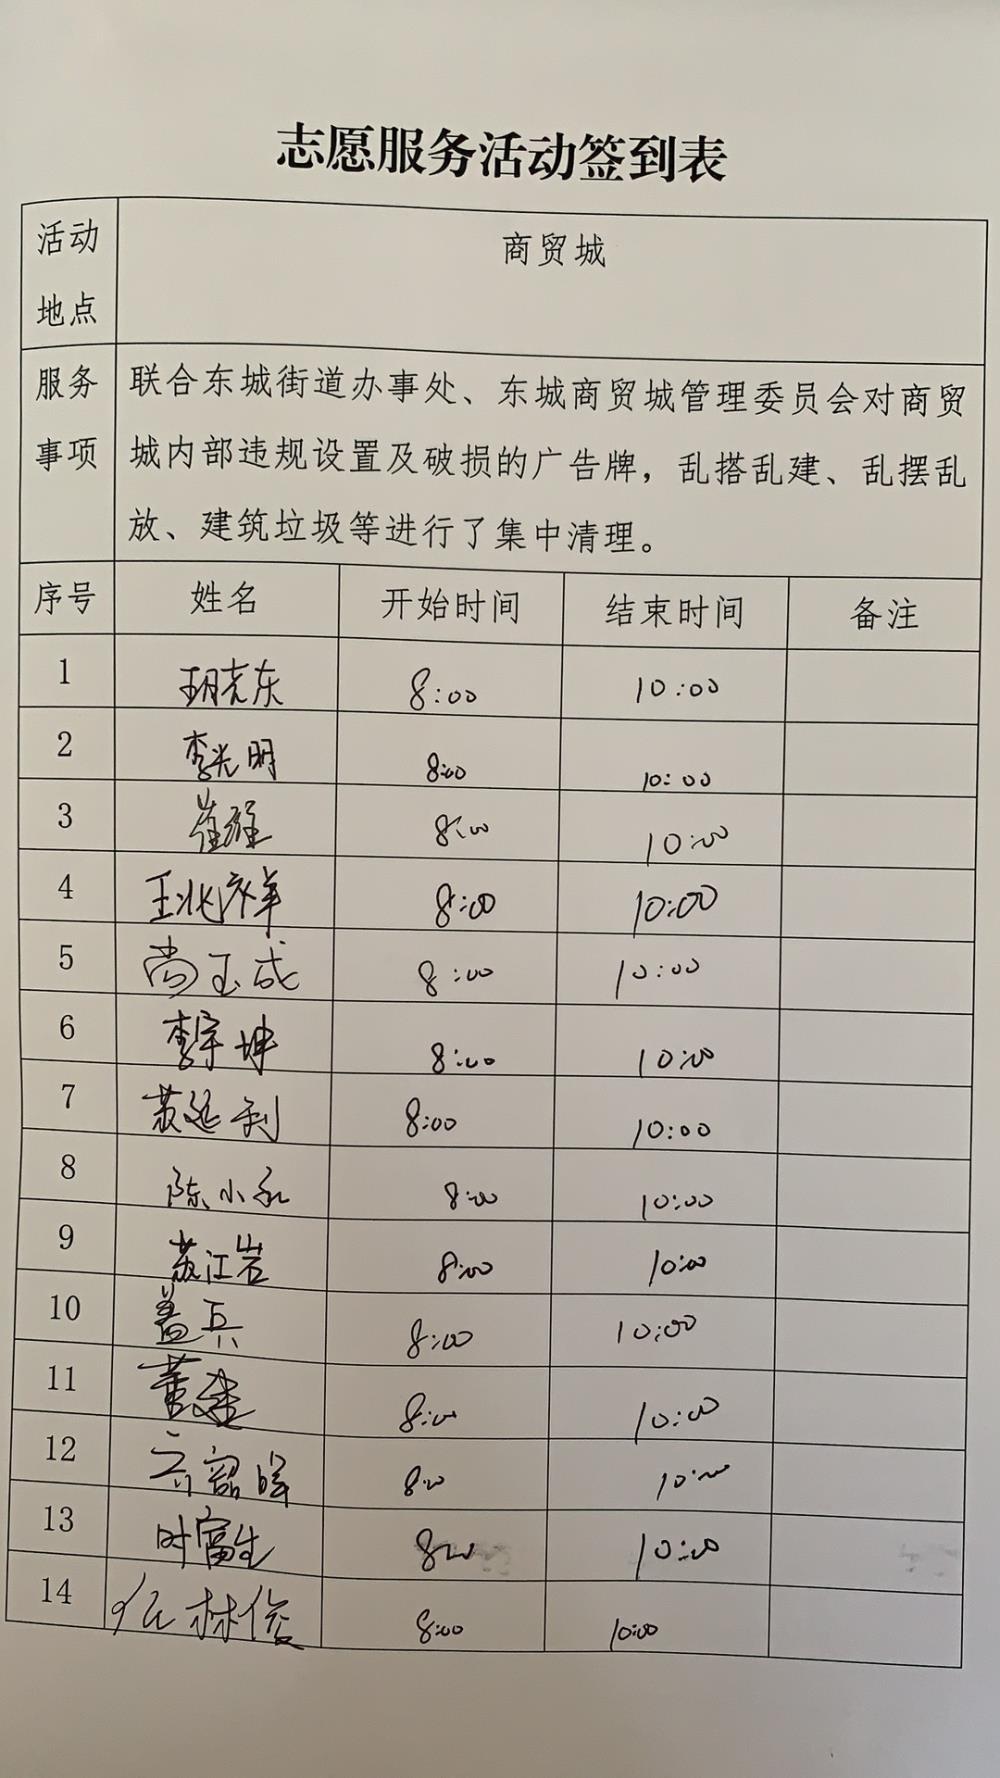 志愿服务活动签到表
活动地点 商贸城
服务事项 联合东城街道办事处、东城商贸城管理委员会对商贸
城内部违规设置及破损的广告牌，乱搭乱建、乱摆乱
放、建筑垃圾等进行了集中清理。
序号 姓名 开始时间 结束时间 备注
1 8:00 10:00
2 李光明 8:00 10:00
3 崔雄 8:00 10:00
4 王兆祥 8:00 10:00
5 尚玉成 8:00 10:00
6 李宇坤 8:00 10:00
7 苏延利 8:00 10:00
8 陈小永 8:00 10:00
9 苏江岩 8:00 10:00
10 盖兵 8:00 10:00
11 董建 8:00 10:00
12 8:00 10:00
13 时富生 8:00 10:00
14 林俊 8:00 10:00